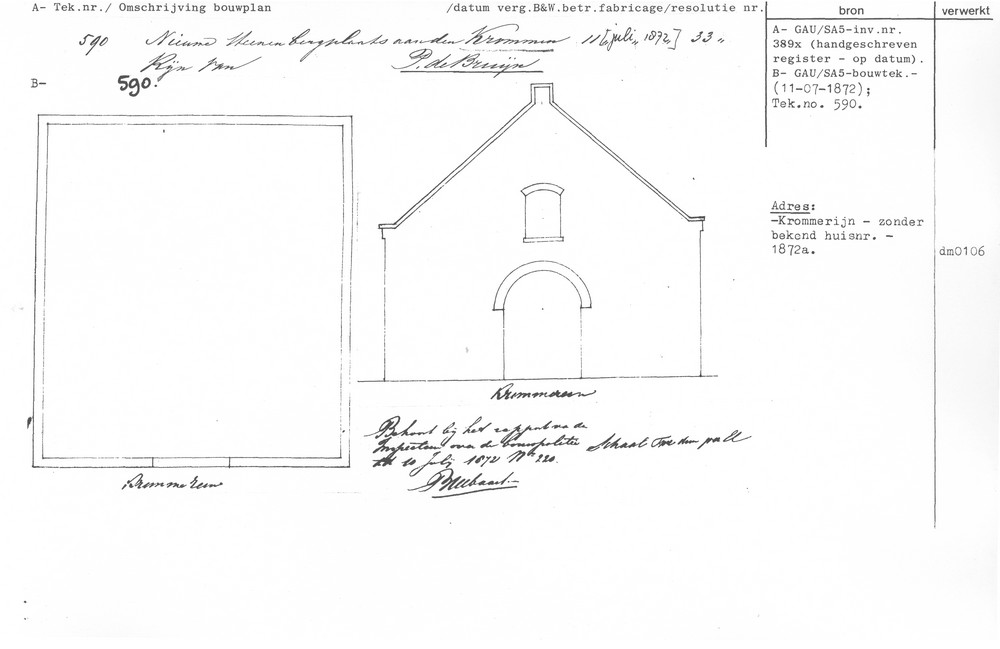 A- Tek.nr./ Omschrijving bouwplan /datum verg.B&W.betr.fabricage/resolutie nr. bron verwerkt
590 Nieuwe steenen bergplaats aan den Krommen 11 [juli „ 1872,] 33 „
Rijn van P. de Bruijn
B- 590.
A- GAU/SA5-inv.nr.
389x (handgeschreven
register - op datum).
B- GAU/SA5-bouwtek.-
(11-07-1872);
Tek.no. 590.
Adres:
-Krommerijn - zonder
bekend huisnr. -
1872a.
dm0106
Behoort bij het rapport van de
Inspecteur over de bouwpolitie Schaal
dd 10 Julij 1872 No 220.